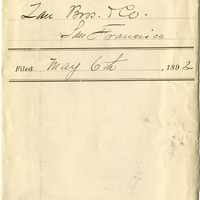 Zan Bros. & Co.
San Francisco
Filed May 6th, 1892